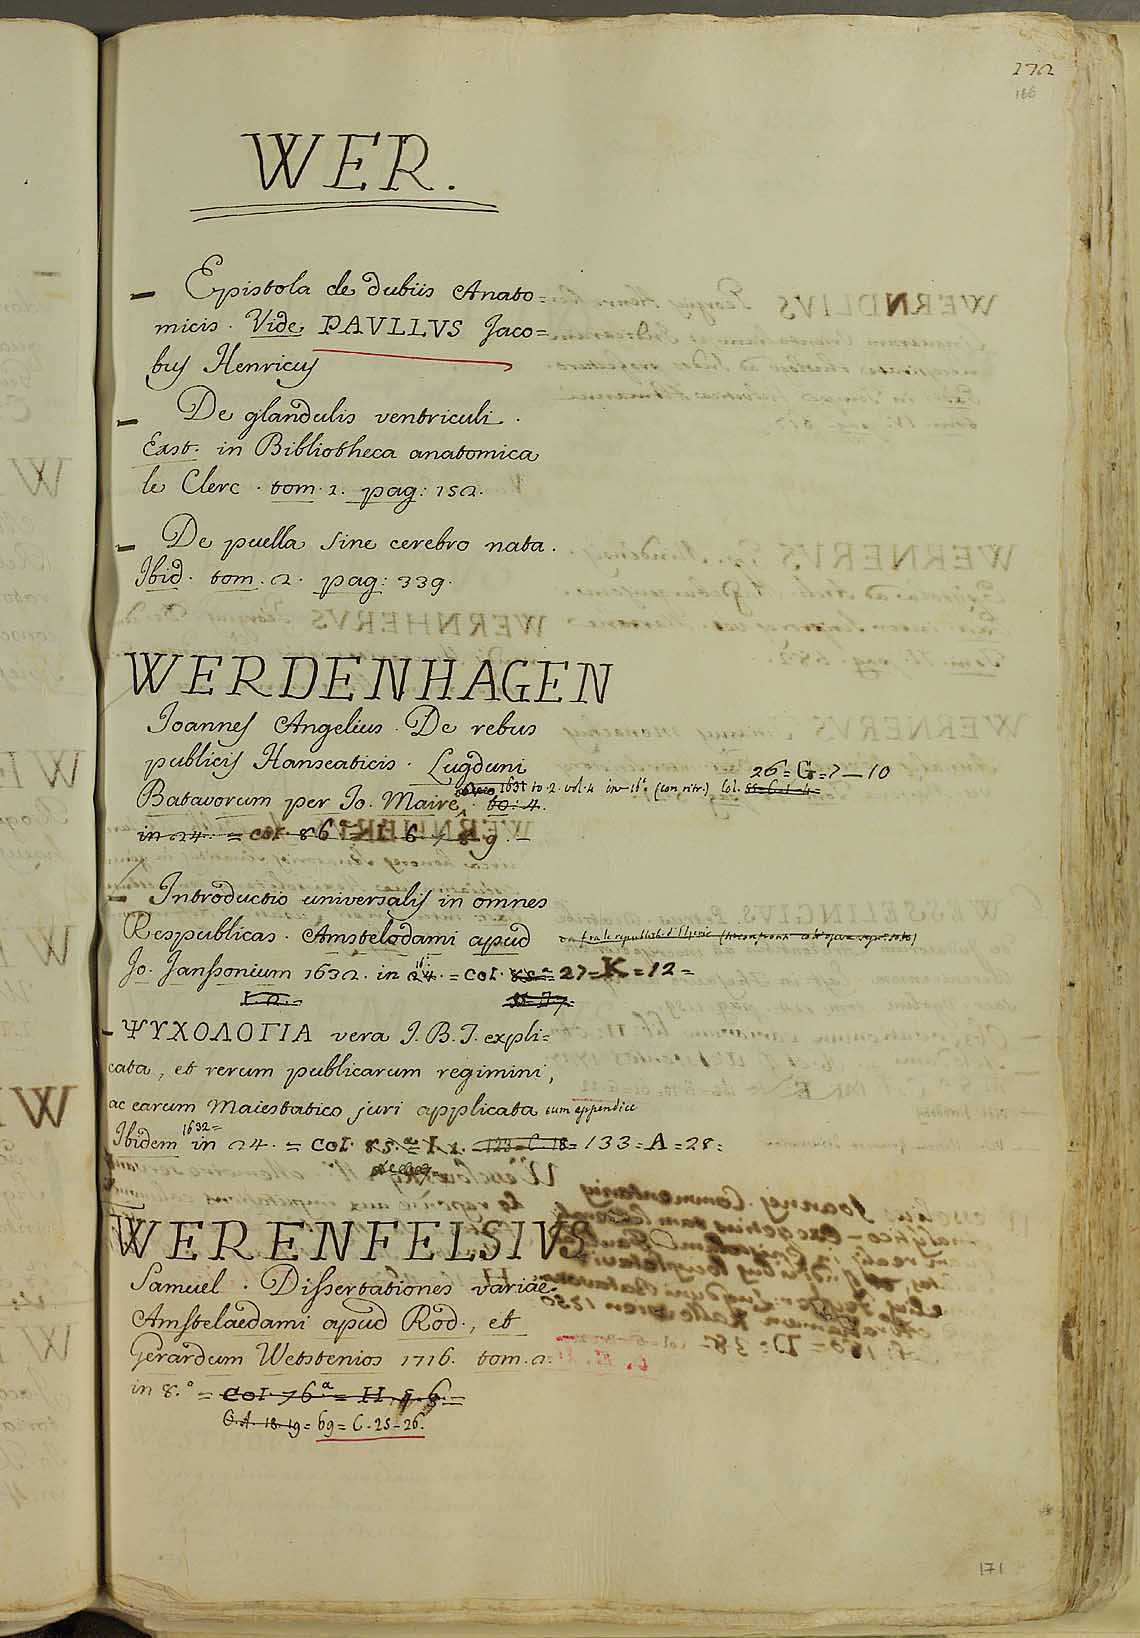 172
166
WER.
– Epistola de dubiis Anato=
micis. Vide PAVLLVS Jaco=
bus Henricus
– De glandulis ventriculi.
Exst. in Bibliotheca anatomica
le Clerc. tom. 1. pag: 152.
– De puella sine cerebro nata.
Ibid. tom. 2. pag: 339.
WERDENHAGEN
Joannes Angelius. De rebus
publicis Hanseaticis. Lugduni
26=G=7–10
Batavorum per Jo. Maire, to: 4. 1631 to. 2. vol. 4 in 16° (con ritr.) Col.
in 24. = col. 86
– Introductio universalis in omnes
Respublicas. Amstelodami apud
Jo. Janssonium 1632. in 24. = col. =27=K=12=
– ΨΥΧΟΛΟΓΙΑ vera J.B.T. expli=
cata, et rerum publicarum regimini,
ac earum Maiestatico juri applicata cum appendice
1632=
Ibidem in 24. = col. 85. 123=C.18= 133=A=28:
WERENFELSIVS
Samuel. Dissertationes variae.
Amstelaedami apud Rod., et
Gerardum Wetstenios 1716. tom. 2:
in 8.° = col. 76.ª = H.
69=C.25-26.
171